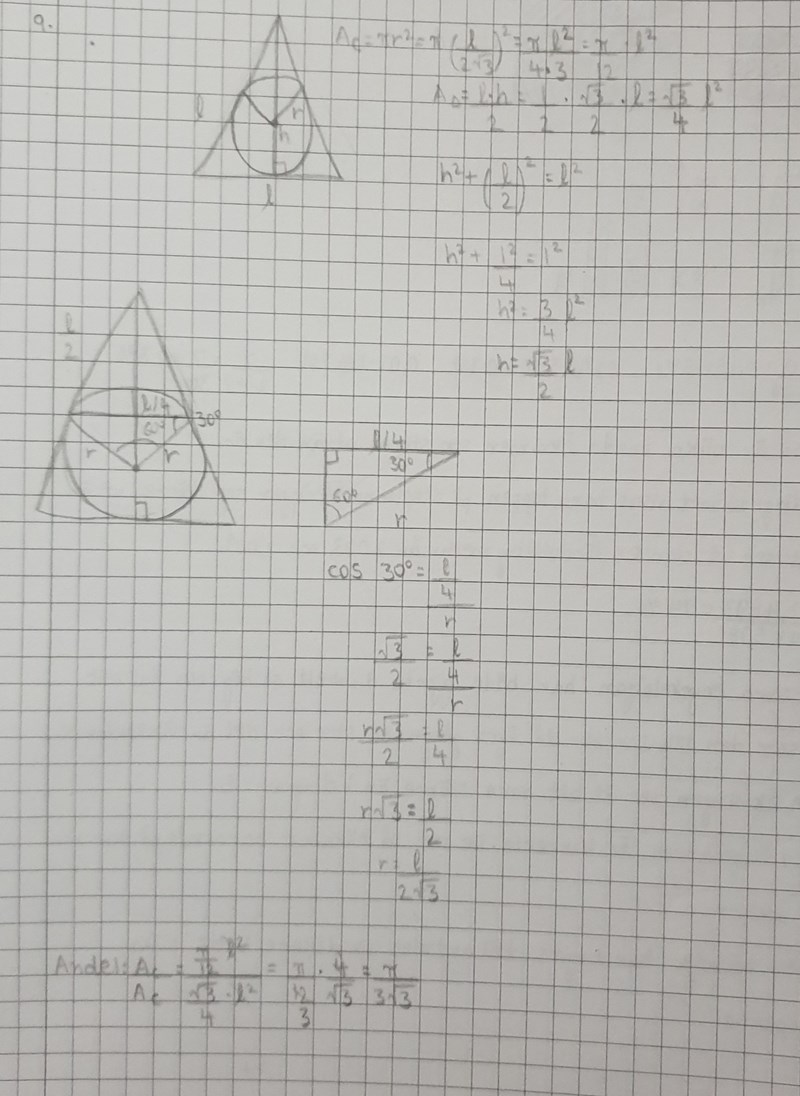 9.
A_c = πr² = π(l/2√3)² = πl²/4·3 = π/12 · l²
A_Δ = l·h/2 = l/2 · √3/2 · l = √3/4 l²
l
r
h
l
h² + (l/2)² = l²
h² + l²/4 = l²
h² = 3/4 l²
h = √3/2 l
l/2
l/4
60°
30°
r
r
l/4
30°
60°
r
cos 30° = l/4/r
√3/2 = l/4/r
r√3/2 = l/4
r√3 = l/2
r = l/2√3
Andel: A_c/A_c = π/12 l²/√3/4 · l² = π/12 3 · 4/√3 = π/3√3